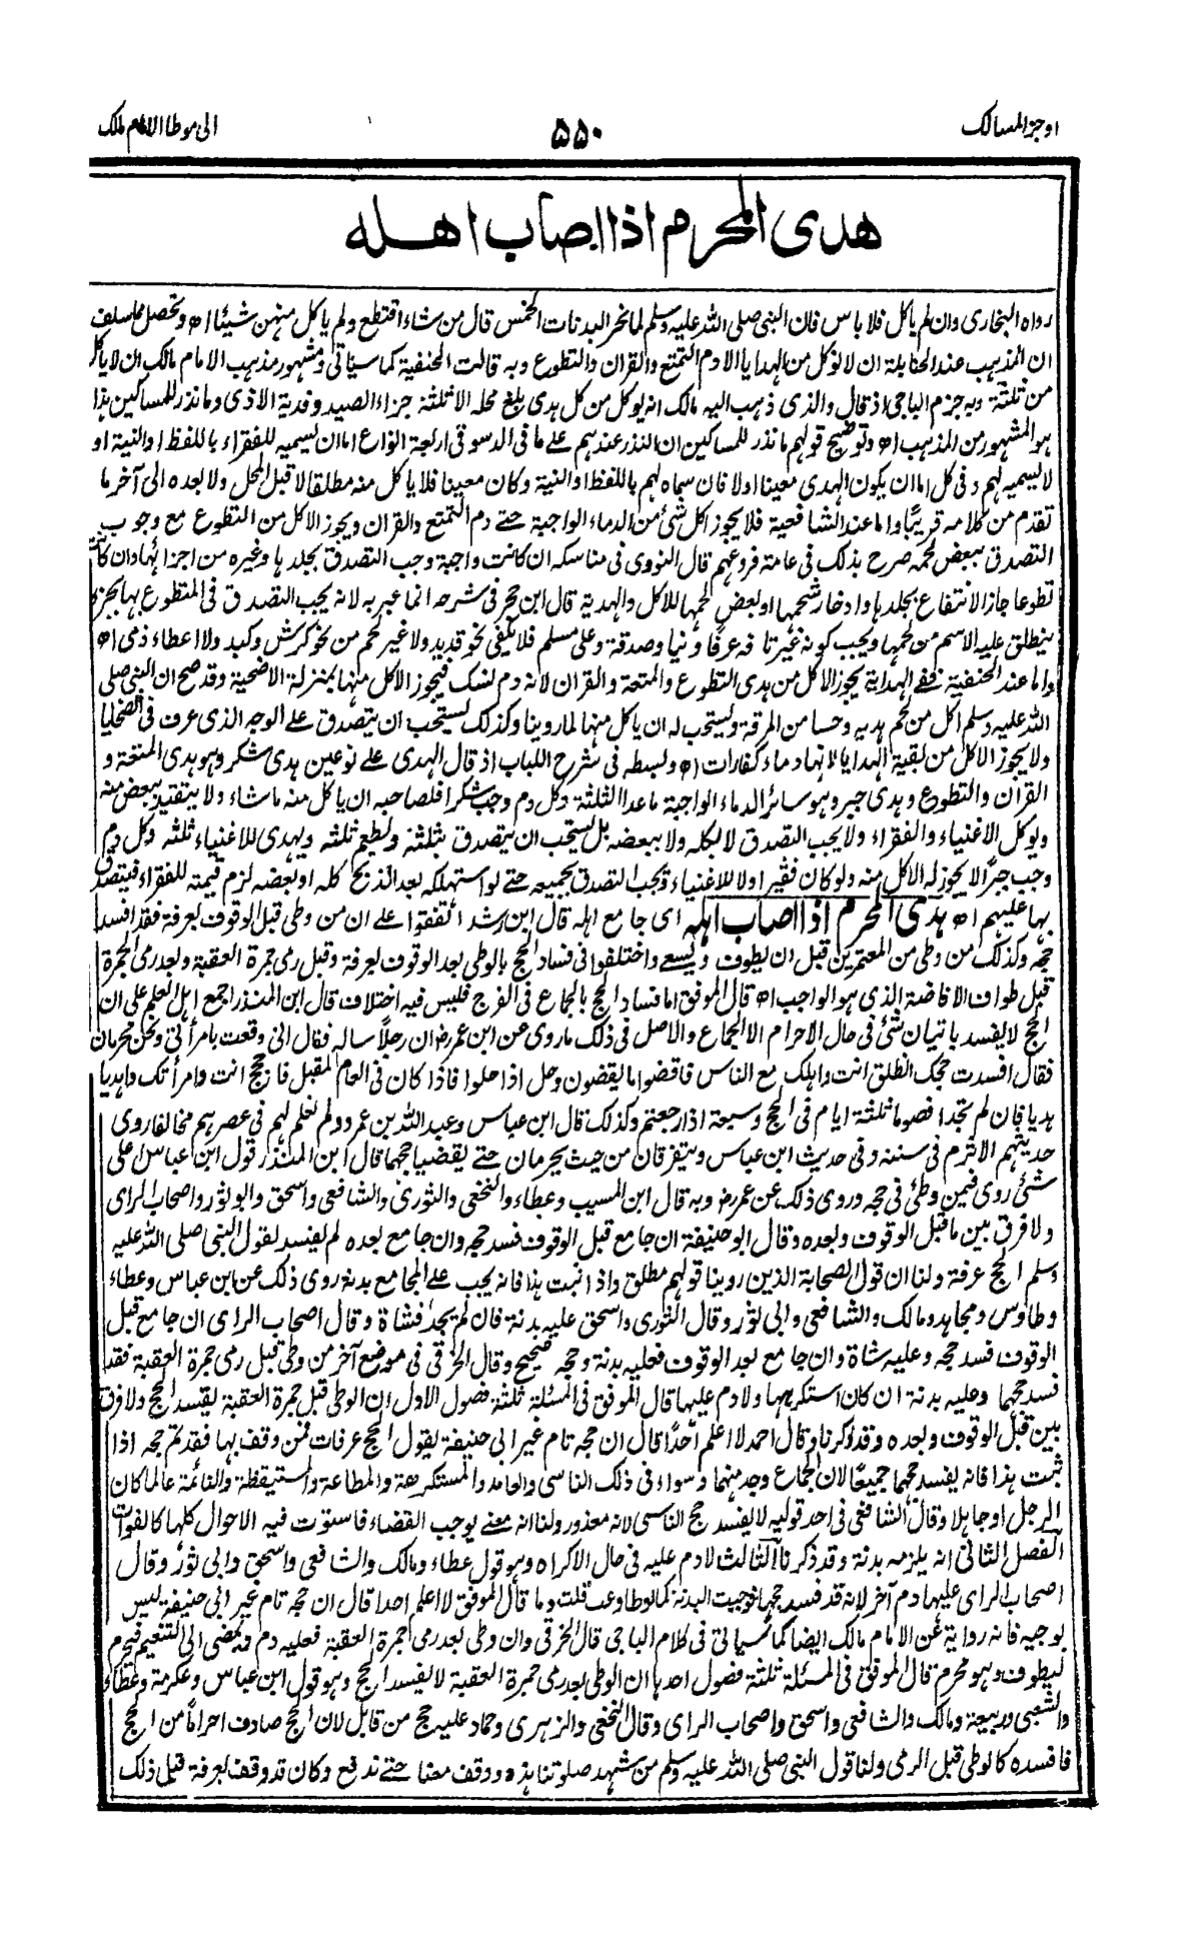 اوجز المسالك
٥٥٠
الى موطا الامام مالك
هدى المحرم اذا اصاب اهله
رواه البخارى وان لم ياكل فلا باس فان النبى صلى الله عليه وسلم لما نحر البدنات الخمس قال من شاء اقتطع ولم ياكل منهن شيئا اه وتحصل مما سلف
ان المذهب عند الحنابلة ان لا يوكل من الهدايا الا دم التمتع والقران والتطوع وبه قالت الحنفية كما سياتى ومشهور مذهب الامام مالك ان لا ياكل
من ثلثة وبه جزم الباجى اذ قال والذى ذهب اليه مالك انه يوكل من كل هدى بلغ محله الا ثلثة جزاء الصيد وفدية الاذى وما نذر للمساكين هذا
هو المشهور من المذهب اه وتوضيح قولهم ما نذر للمساكين ان النذر عندهم على ما فى الدسوقى اربعة انواع اما ان يسميه للفقراء باللفظ او النية او
لا يسميه لهم وفى كل اما ان يكون الهدى معينا اولا فان سماه لهم باللفظ او النية وكان معينا فلا ياكل منه مطلقا لا قبل المحل ولا بعده الى آخر ما
تقدم من كلامه قريبًا واما عند الشافعية فلا يجوز اكل شئ من الدماء الواجبة حتے دم التمتع والقران ويجوز الاكل من التطوع مع وجوب
التصدق ببعض لحمه صرح بذلك فى عامة فروعهم قال النووى فى مناسكه ان كانت واجبة وجب التصدق بجلدها وغيره من اجزائها وان كانت
تطوعا جاز الانتفاع بجلدها وادخار شحمها او بعض لحمها للاكل والهدية قال ابن حجر فى شرحه انما عبر به لانه يجب التصدق فى المتطوع بها بجزء
ينطلق عليه الاسم من لحمها ويجب كونه غير تافه عرفًا ونيا وصدقة وعلى مسلم فلا يكفى نحو قديد ولا غير لحم من نحو كرش وكبد ولا اعطاء ذمى اه
واما عند الحنفية ففے الهداية يجوز الاكل من هدى التطوع والمتعة والقران لانه دم نسك فيجوز الاكل منها بمنزلة الاضحية وقد صح ان النبى صلى
الله عليه وسلم اكل من لحم هديه وحسا من المرقة ويستحب له ان ياكل منها لما روينا وكذلك يستحب ان يتصدق على الوجه الذى عرف فى الضحايا
ولا يجوز الاكل من بقية الهدايا لانها دماء كفارات اه وبسطه فى شرح اللباب اذ قال الهدى على نوعين هدى شكر وهو هدى المتعة و
القران والتطوع وهدى جبر وهو سائر الدماء الواجبة ما عدا الثلثة وكل دم وجب شكرا فلصاحبه ان ياكل منه ما شاء ولا يتقيد ببعض منه
ويوكل الاغنياء والفقراء ولا يجب التصدق لا بكله ولا ببعضه بل يستحب ان يتصدق بثلثه ويطعم ثلثه ويهدى للاغنياء ثلثه وكل دم
وجب جبرًا لا يجوز له الاكل منه ولو كان فقيرا ولا للاغنياء ويجب التصدق بجميعه حتے لو استهلكه بعد الذبح كله او بعضه لزم قيمته للفقراء فيتصدق
بها عليهم اه هدى المحرم اذا اصاب اهله اى جامع اهله قال ابن رشد اتفقوا على ان من وطى قبل الوقوف بعرفة فقد افسد
حجه وكذلك من وطى من المعتمرين قبل ان يطوف ويسعے واختلفوا فى فساد الحج بالوطى بعد الوقوف بعرفة وقبل رمى جمرة العقبة وبعد رمى الجمرة
قبل طواف الافاضة الذى هو الواجب اه قال الموفق اما فساد الحج بالجماع فى الفرج فليس فيه اختلاف قال ابن المنذر اجمع اهل العلم على ان
الحج لا يفسد باتيان شئ فى حال الاحرام الا الجماع والاصل فى ذلك ما روى عن ابن عمر رض ان رجلًا ساله فقال انى وقعت بامرأتى ونحن محرمان
فقال افسدت حجك انطلق انت واهلك مع الناس فاقضوا ما يقضون وحل اذا حلوا فاذا كان فى العام المقبل فاحجج انت وامرأتك واهديا
هديا فان لم تجدا فصوما ثلثة ايام فى الحج وسبعة اذا رجعتم وكذلك قال ابن عباس وعبد الله بن عمرو ولم نعلم لهم فى عصرهم مخالفا روى
حديثهم الاثرم فى سننه وفى حديث ابن عباس ويتفرقان من حيث يحرمان حتے يقضيا حجهما قال ابن المنذر قول ابن عباس اعلى
شئ روى فيمن وطئ فى حجه وروى ذلك عن عمر رض وبه قال ابن المسيب وعطاء والنخعى والثورى والشافعى واسحق وابو ثور واصحاب الراى
ولا فرق بين ما قبل الوقوف وبعده وقال ابو حنيفة ان جامع قبل الوقوف فسد حجه وان جامع بعده لم يفسد لقول النبى صلى الله عليه
وسلم الحج عرفة ولنا ان قول الصحابة الذين روينا قولهم مطلق واذا ثبت هذا فانه يجب على المجامع بدنة روى ذلك عن ابن عباس وعطاء
وطاوس ومجاهد ومالك والشافعى وابى ثور وقال الثورى واسحق عليه بدنة فان لم يجد فشاة وقال اصحاب الراى ان جامع قبل
الوقوف فسد حجه وعليه شاة وان جامع بعد الوقوف فعليه بدنة وحجه صحيح وقال الخرقى فى موضع آخر من وطى قبل رمى جمرة العقبة فقد
فسد حجهما وعليه بدنة ان كان استكرهها ولا دم عليها قال الموفق فى المسئلة ثلثة فصول الاول ان الوطى قبل جمرة العقبة يفسد الحج ولا فرق
بين قبل الوقوف وبعده وقد ذكرنا وقال احمد لا اعلم احدًا قال ان حجه تام غير ابى حنيفة يقول الحج عرفات فمن وقف بها فقد تم حجه اذا
ثبت هذا فانه يفسد حجهما جميعًا لان الجماع وجد منهما وسواء فى ذلك الناسى والعامد والمستكرهة والمطاعة والمستيقظة والنائمة عالما كان
الرجل او جاهلا وقال الشافعى فى احد قوليه لا يفسد حج الناسى لانه معذور ولنا انه معنے يوجب القضاء فاستوت فيه الاحوال كلها كالفوات
الفصل الثانى انه يلزمه بدنة وقد ذكرنا الثالث لا دم عليه فى حال الاكراه وهو قول عطاء ومالك والشافعى واسحق وابى ثور وقال
اصحاب الراى عليها دم آخر لانه قد فسد حجها فوجبت البدنة كما لو طاوعت قلت وما قال الموفق لا اعلم احدا قال ان حجه تام غير ابى حنيفة ليس
بوجيه فانه رواية عن الامام مالك ايضا كما سياتى فى كلام الباجى قال الخرقى وان وطى بعد رمى جمرة العقبة فعليه دم ويمضى الى التنعيم فيحرم
ليطوف وهو محرم قال الموفق فى المسئلة ثلثة فصول احدها ان الوطى بعد رمى جمرة العقبة لا يفسد الحج وهو قول ابن عباس وعكرمة وعطاء
والشعبى وربيعة ومالك والشافعى واسحق واصحاب الراى وقال النخعى والزهرى وحماد عليه حج من قابل لان الحج صادف احرامًا من الحج
فافسده كالوطى قبل الرمى ولنا قول النبى صلى الله عليه وسلم من شهد صلوتنا هذه ووقف معنا حتے ندفع وكان قد وقف بعرفة قبل ذلك